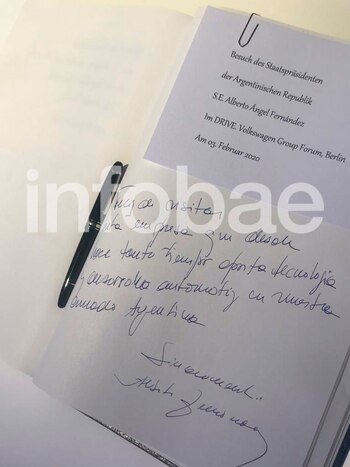 Besuch des Staatspräsidenten
der Argentinischen Republik
S.E. Alberto Ángel Fernández
Im DRIVE. Volkswagen Group Forum, Berlin
Am 03. Februar 2020
infobae
visitar
esta empresa que desde
hace tanto tiempo aporta tecnología
y desarrollo automotriz en nuestra
Argentina
Sinceramente.